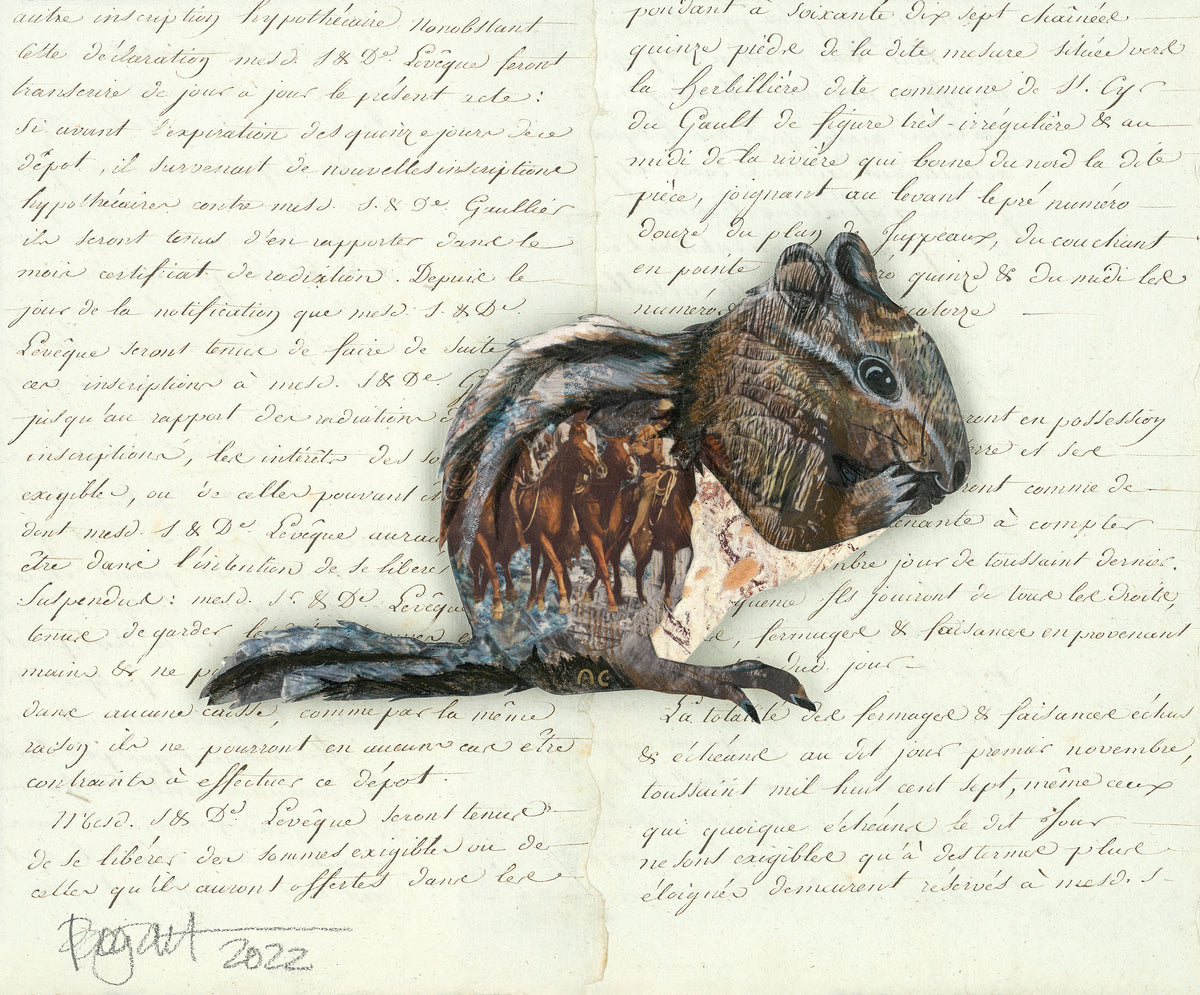 autre inscription hypothécaire Nonobstant
cette déclaration mesd. S & De. Levêque feront
transcrire de jour à jour le présent acte :
Si avant l'expiration des quinze jours de ce
dépot, il survenait de nouvelles inscriptions
hypothécaires contre mesd. S. & De. Gaullier
ils seront tenus d'en rapporter dans le
mois certificat de radiation. Depuis le
jour de la notification que mesd. S. & De.
Levêque seront tenus de faire de suite
ces inscriptions à mesd. S & De. G
jusqu'au rapport des radiations
inscriptions, les intérêts des so
exigible, ou de celles pouvant
dont mesd. S & De Levêque aurai
être dans l'intention de se libérer
Suspendus : mesd. S. & De Levêque
tenus de garder
mains & ne p
dans aucune caisse, comme par la même
raison ils ne pourront en aucun cas être
contraints à effectuer ce dépot.
Mesd. S & De. Levêque seront tenus
de se libérer des sommes exigibles ou de
celles qu'ils auront offertes dans les
pondant à soixante dix sept chaînées
quinze pieds de la dite mesure située vers
la Herbillière dite commune de St. Cyr
du Gault de figure très-irrégulière & au
midi de la rivière qui borne du nord la dite
pièce, joignant au levant le pré numéro
douze du plan de Juppeaux, du couchant
en pointe ro quinze & du midi les
numéros atorze
ront en possession
rre et ses
ront comme de
enante à compter
mbre jour de toussaint dernier.
quence Ils jouiront de tous les droits,
, fermages & faisances en provenant
dud jour
La totalité des fermages & faisances échus
& échéans au dit jour premier novembre,
toussaint mil huit cent sept, même ceux
qui quoique échéans le dit Jour
ne sont exigibles qu'à des termes plus
éloignés demeurent réservés à mesd. S
AC
2022